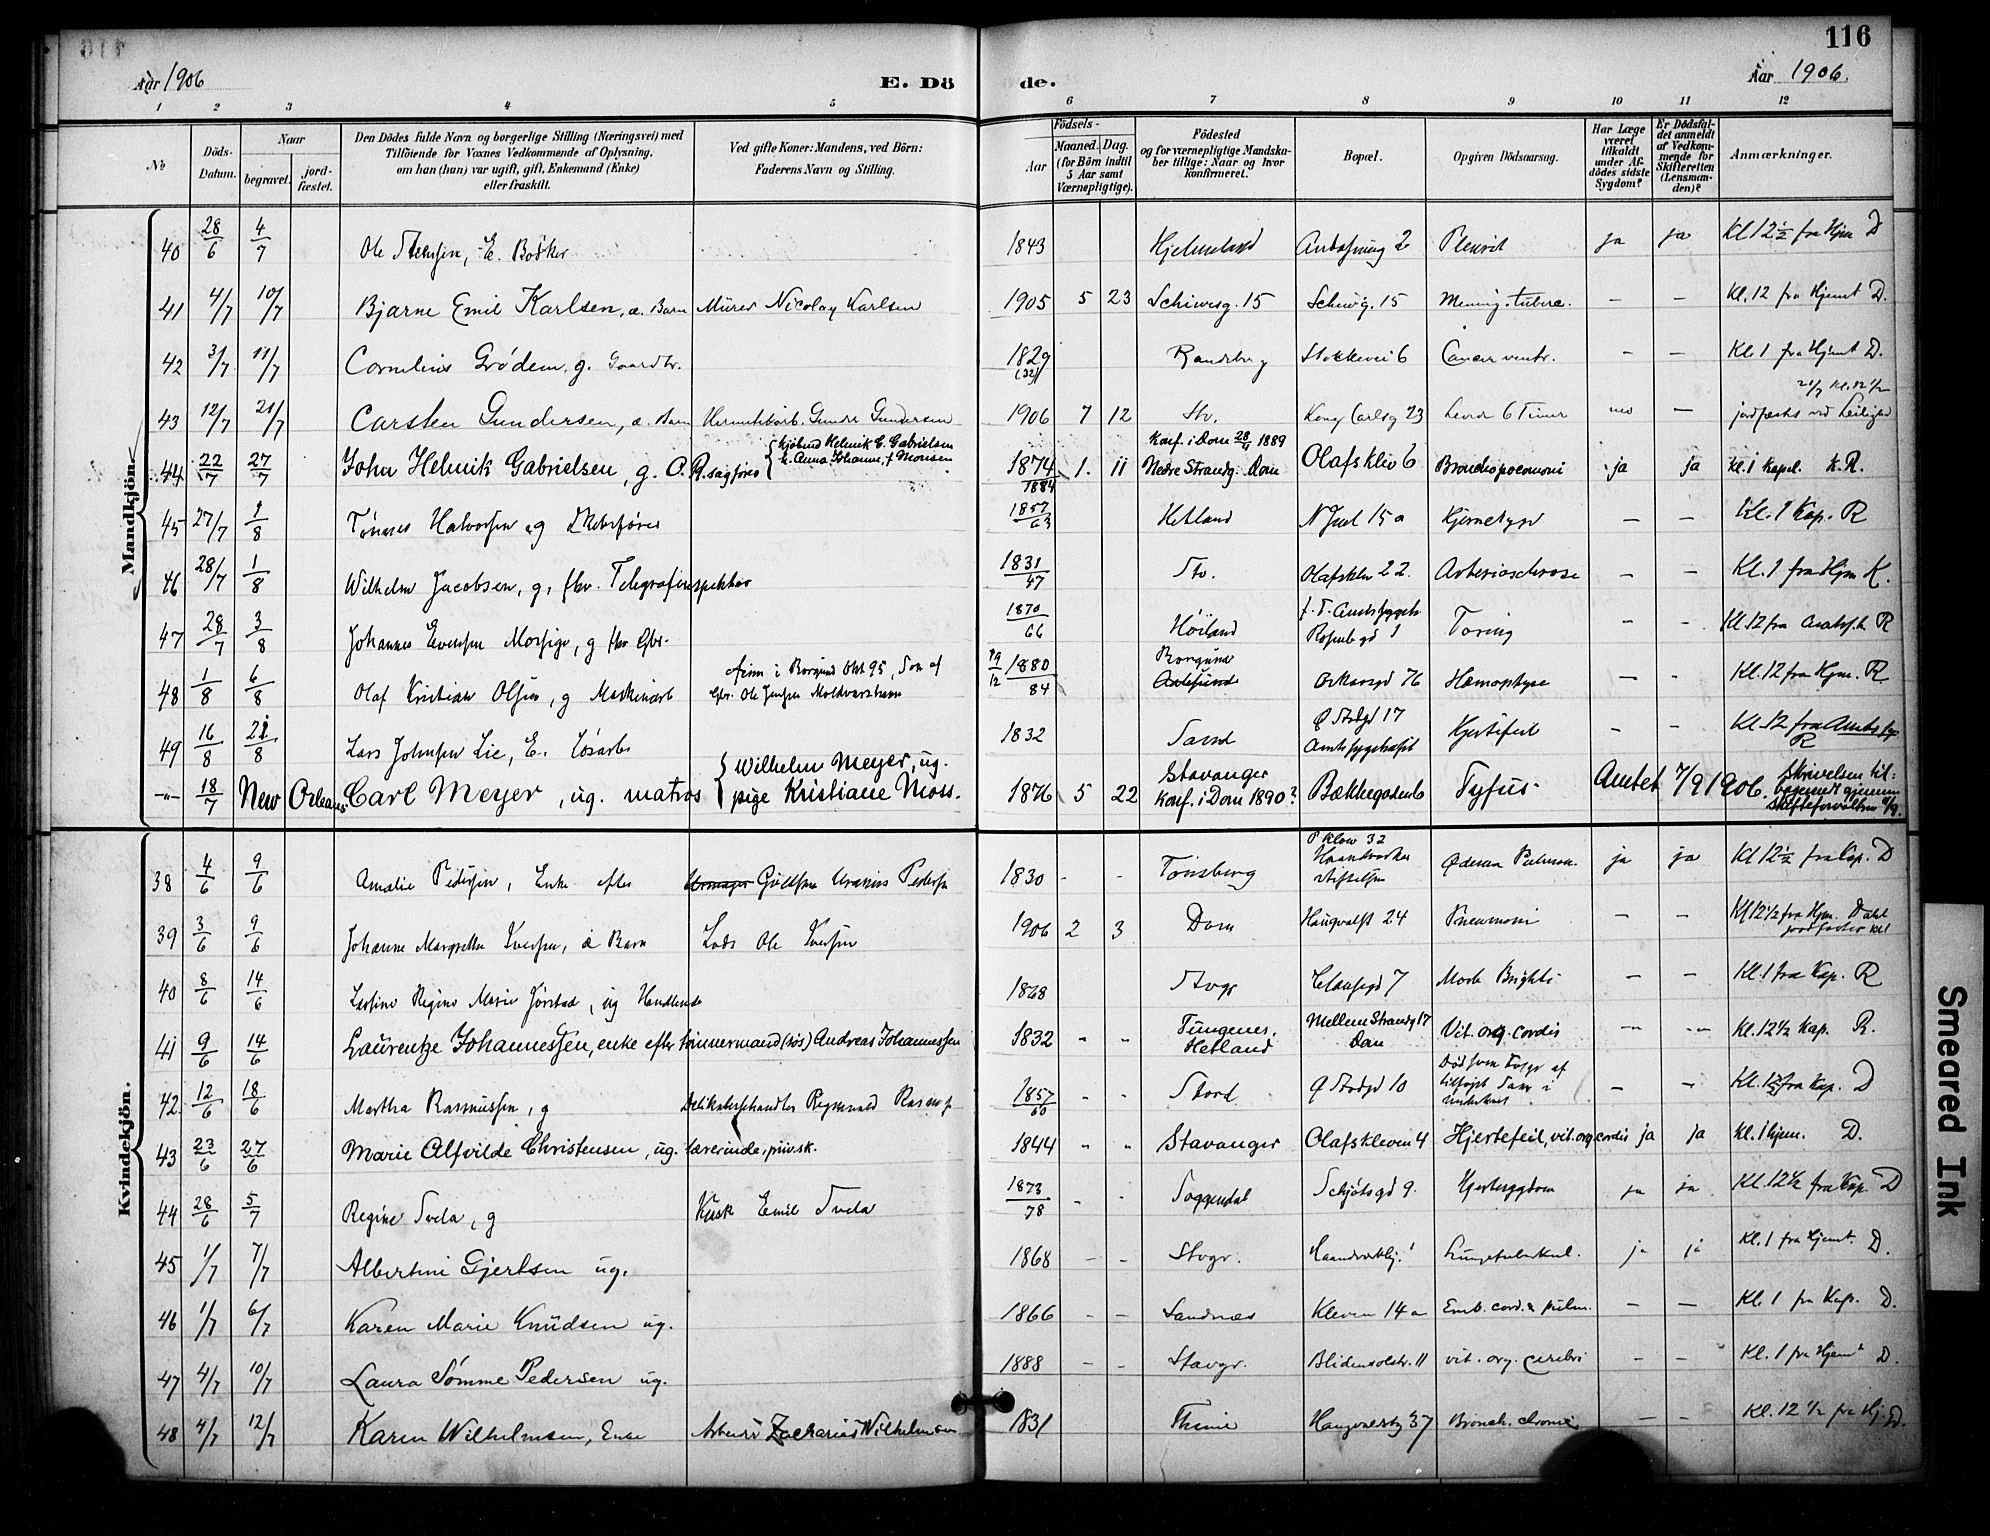 116
Aar 1906
E. Dö
de.
Aar 1906.
1 2 3 4 5 6 7 8 9 10 11 12
No
Döds-Datum.
Naar
begravet.
jord-fæstet.
Den Dödes fulde Navn og borgerlige Stilling (Næringsvei) med
Tilföiende for Voxnes Vedkommende af Oplysning,
om han (hun) var ugift, gift, Enkemand (Enke)
eller fraskilt.
Ved gifte Koner: Mandens, ved Börn:
Faderens Navn og Stilling.
Födsels-
Aar
Maaned. Dag.
(for Börn indtil
5 Aar samt
Værnepligtige).
Födested
og for værnepligtige Mandska-
ber tillige: Naar og hvor
konfirmeret.
Bopæl.
Opgiven Dödsaarsag.
Har Læge
været
tilkaldt
under Af-
dödes sidste
Sygdom?
Er Dödsfal-
det anmeldt
af Vedkom-
mende for
Skifteretten
(Lensman-
den)?
Anmærkninger.
Mandkjön.
40 28/6 4/7 Ole Stensen, E. Bødker 1843 Hjelmeland 2 Plevrit ja ja Kl 12½ fra Hjm D
41 4/7 10/7 Bjarne Emil Karlsen, æ. Barn Murer Nicolay Karlsen 1905 5 23 Schiwesg. 15 Schiwg. 15 Mening. tuberc. — — Kl. 12 fra Hjemt D.
42 3/7 11/7 Cornelius Grødem, g. Gaardbr. 1829 (32) Randeberg Stokkevei 6 Cancer ventr. — — Kl. 1 fra Hjemt D.
43 12/7 21/7 Carsten Gundersen, æ. Barn Hermetikarb. Gundersen 1906 7 12 Stv. Kong Carlsg 23 Levede 6 Timer — 21/7 Kl. 12 1/2
jordfæstes ved Leilighed
44 22/7 27/7 John Helmik Gabrielsen, g. O.R. sagfører { Kjøbmd Helmik C. Gabrielsen
h. Anna Johanne, f. Monsen 1874/1884 1. 11 Konf. i Dom 28/4 1889
Nedre Strandg. Dom Olafsklev 6 Bronchopneumoni ja ja Kl. 1 Kapel. K.R.
45 27/7 1/8 Tønnes Halvorsen, g 1857/63 Hetland N Juel 15 a — — Kl. 1 Kap. R
46 28/7 1/8 Wilhelm Jacobsen, g, fhv. Telegrafinspektør 1831/47 Stv. Olafsklev 22. Arteriosclerose — — Kl. 1 fra Hjm K.
47 28/7 3/8 Johannes Evensen Mossige, g fhv Gbr. 1870/66 Høiland f. T. Amtssygeh.
1 Tæring — — Kl. 12 fra Amtss.h. R
48 1/8 6/8 Olaf Kristian Olsen, g Maskinarb i Borgund Okt 95, Søn af
Gbr. Ole Jensen 19/12 1880/84 Borgund
Aalesund Oskarsgd 76 Hæmoptyse — — Kl. 12 fra Hjm. R
49 16/8 21/8 Lars Johnsen Lie, E. Løsarb 1832 Sand Ø Strdgd 17
Amtssygehuset Hjertefeil — — Kl. 12 fra Amtssyg
R
-"- 18/7 New Orleans Carl Meyer, ug. matros { Wilhelm Meyer, ug.
pige Kristiane Moss. 1876 5 22 Stavanger
Konf. i Dom 1890? Bækkegaden 6 Tyfus Amtet 7/9 1906. Skrivelsen til-
bagesendt gjennem
Skifteforvaltern
Kvindekjön.
38 4/6 9/6 Amalie Pedersen, Enke efter Urmager Guldsm Pedersen 1830 - - Tønsberg P Klow 32
Haandværker
stiftelsen Ødema Pulmon. ja ja Kl 12½ fra Kap. D
39 3/6 9/6 Johanne Margrethe Iversen, æ Barn Lods Ole Iversen 1906 2 3 Dom Haugvaldst 24 Pneumoni — — Kl 12½ fra Hjm. Dahl
jordfæster
40 8/6 14/6 Regine Marie Jørstad, ug Handlende 1868 Stvgr 7 Morb Brighti — — Kl. 1 fra Kap. R
41 9/6 14/6 Laurentze Johannessen, enke efter tømmermand (løs) Andreas Johannessen 1832 " " Tungenes,
Hetland Mellem Strandg 17
Dom Vit. org. cordis — — Kl. 12 1/2 Kap. R.
42 12/6 18/6 Martha Rasmussen, g Delikatessehandler Rasmus 1857/60 - - Stord Ø Strdgd 10 Død som Følge af
tilføiet i — — Kl. 12½ fra Kap. D
43 23/6 27/6 Marie Alfvilde Christensen, ug. lærerinde, priv.sk. 1844 " " Stavanger Olafskleven 4 Hjertefeil, vit. org. cordis ja ja Kl. 1 hjem. D.
44 28/6 5/7 Regine Svela, g Kusk Emil Svela 1873/78 - - Soggendal Schjøtsgd 9. Hjertesygdom ja ja Kl. 12 1/2 fra Kap. D
45 1/7 7/7 Albertine Gjertsen ug. 1868 - - Stvgr. Lungetuberkul. ja ja Kl. 1 fra Hjemt. D.
46 1/7 6/7 Karen Marie Knudsen ug. 1866 - - Sandnæs Kleven 14 a Emb. cord. & pulm. — — Kl. 1 fra Kap. D.
47 4/7 10/7 Laura Sømme Pedersen ug. 1888 - - Stavgr. Blidensolstr. 11 vit. org. cerebri — — Kl. 1 fra Hjem D.
48 4/7 12/7 Karen Wilhelmsen, Enke Arbeid Zacharias Wilhelmsen 1831 Thime Haugvaldstg 37 Bronch. chronic — — Kl. 12 1/2 fra Hj. D.
Smeared Ink